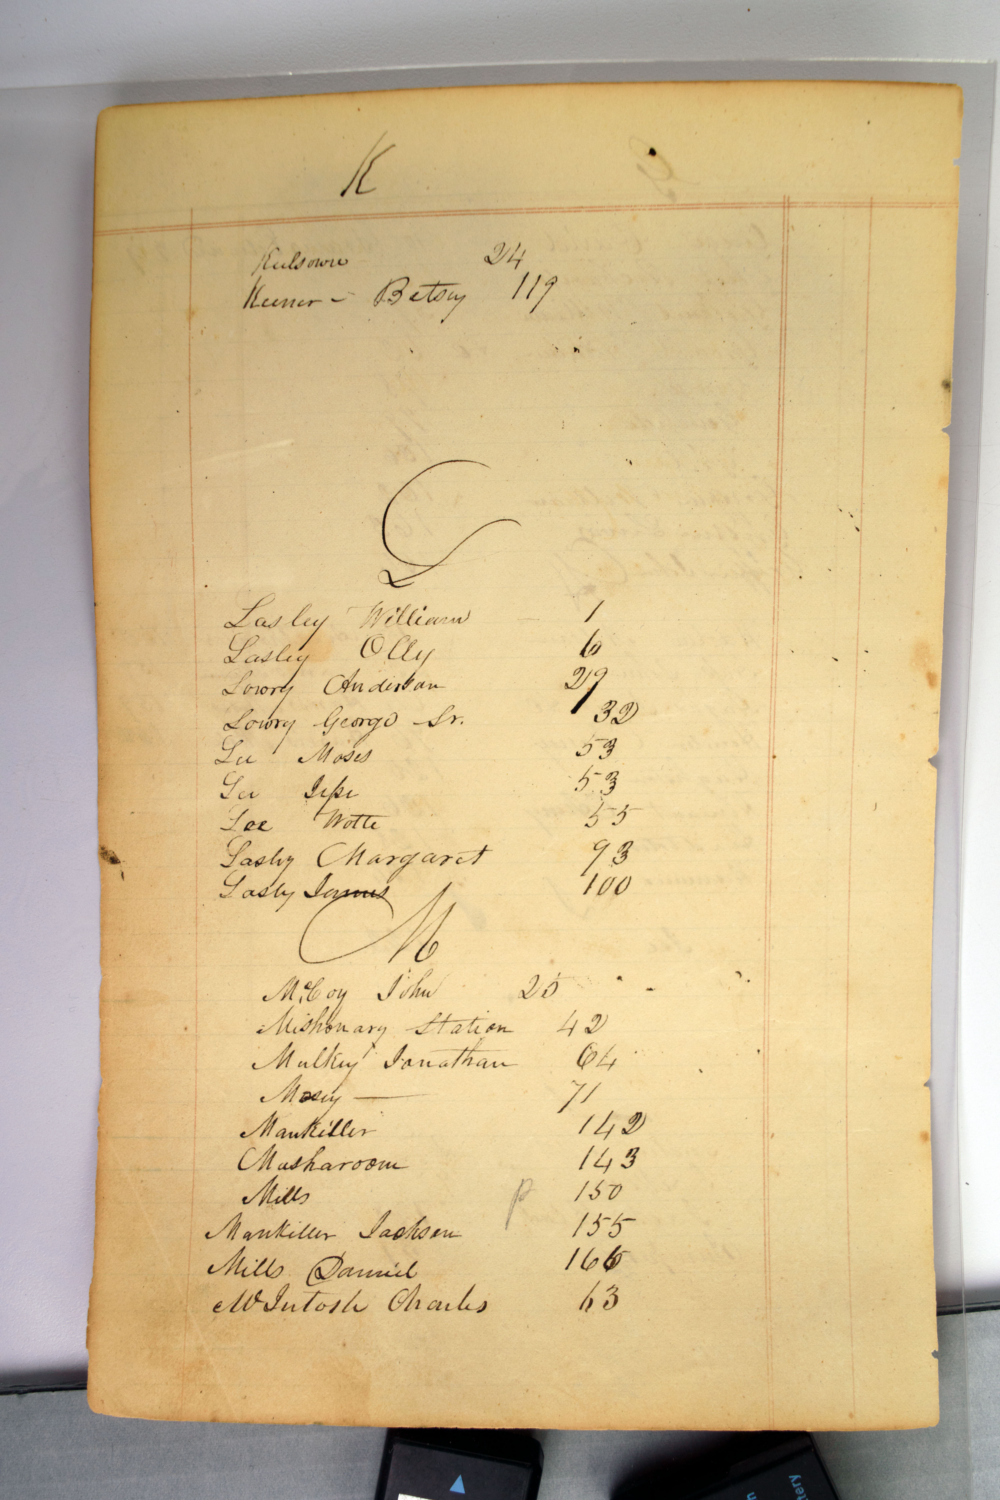 K
Keelsowre 24
Keener - Betsey 119
L
Lasley William 1
Lasley Olly 6
Lowry Anderson 29
Lowry George Sr. 32
Lee Moses 53
Lee Jesse 53
Lee Wotte 55
Lasly Margaret 93
Lasly James 100
M
McCoy John 25
Mishonary Station 42
Mulkey Jonathan 64
Mosey — 71
Mankiller 142
Musharoom 143
Mills p 150
Mankiller Jackson 155
Mills Daniel 166
McIntosh Charles 63